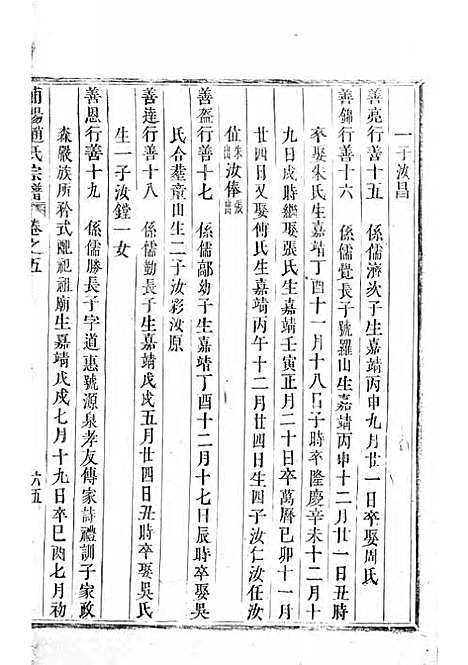 一子汝昌
善亮行善十五 係儒濟次子生嘉靖丙申九月廿一日卒娶周氏
善錦行善十六 係儒覺長子號羅山生嘉靖丙申十二月廿一日丑時
卒娶朱氏生嘉靖丁酉十一月十八日子時卒隆慶辛未十二月
九日戌時繼娶張氏生嘉靖壬寅正月二十日卒萬曆己卯十一月
廿四日又娶傅氏生嘉靖丙午十二月廿四日生四子汝仁汝任汝
值朱出汝俸張出
善盔行善十七 係儒鄗幼子生嘉靖丁酉十二月十七日辰時卒娶吳
氏合葬童山生二子汝彩汝原
善達行善十八 係儒勤長子生嘉靖戊戌五月廿四日丑時卒娶吳氏
生一子汝鏜一女
善恩行善十九 係儒勝長子字道惠號源泉孝友傳家詩禮訓子家政
森嚴族所矜式配祀祖廟生嘉靖戊戌七月十九日卒巳酉七月初
浦陽趙氏宗譜 卷之五 六五